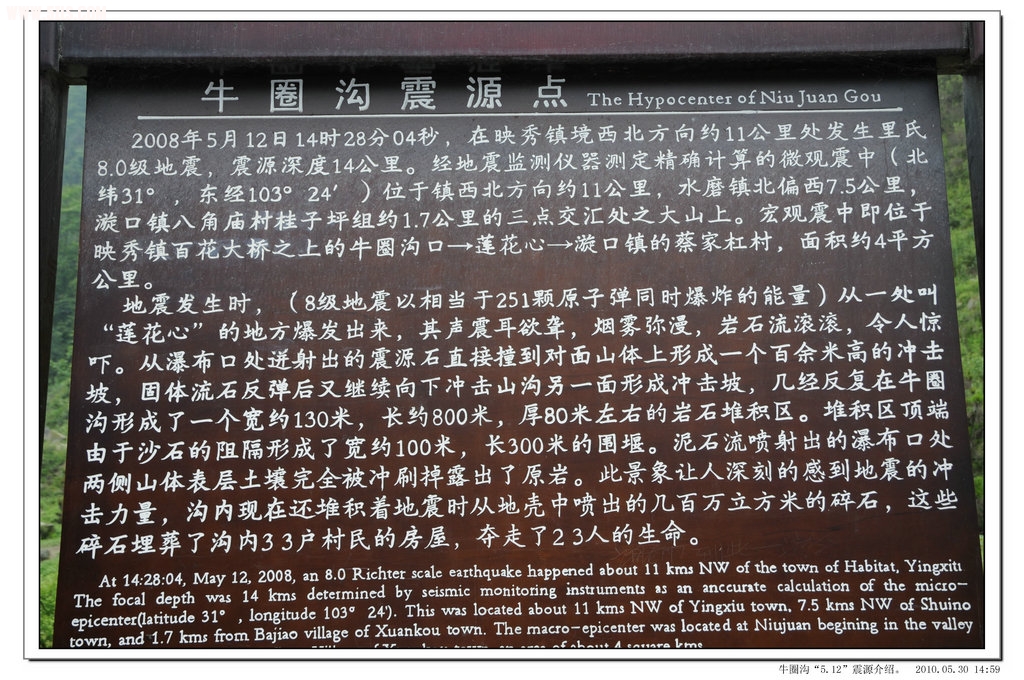 牛圈沟震源点 The Hypocenter of Niu Juan Gou
2008年5月12日14时28分04秒，在映秀镇境西北方向约11公里处发生里氏
8.0级地震，震源深度14公里。经地震监测仪器测定精确计算的微观震中（北
纬31°，东经103°24′）位于镇西北方向约11公里，水磨镇北偏西7.5公里，
漩口镇八角庙村桂子坪组约1.7公里的三点交汇处之大山上。宏观震中即位于
映秀镇百花大桥之上的牛圈沟口→莲花心→漩口镇的蔡家杠村，面积约4平方
公里。
地震发生时，（8级地震以相当于251颗原子弹同时爆炸的能量）从一处叫
“莲花心”的地方爆发出来，其声震耳欲聋，烟雾弥漫，岩石流滚滚，令人惊
吓。从瀑布口处迸射出的震源石直接撞到对面山体上形成一个百余米高的冲击
坡，固体流石反弹后又继续向下冲击山沟另一面形成冲击坡，几经反复在牛圈
沟形成了一个宽约130米，长约800米，厚80米左右的岩石堆积区。堆积区顶端
由于沙石的阻隔形成了宽约100米，长300米的围堰。泥石流喷射出的瀑布口处
两侧山体表层土壤完全被冲刷掉露出了原岩。此景象让人深刻的感到地震的冲
击力量，沟内现在还堆积着地震时从地壳中喷出的几百万立方米的碎石，这些
碎石埋葬了沟内33户村民的房屋，夺走了23人的生命。
At 14:28:04, May 12, 2008, an 8.0 Richter scale earthquake happened about 11 kms NW of the town of Habitat, Yingxiu
The focal depth was 14 kms determined by seismic monitoring instruments as an anccurate calculation of the micro-
epicenter(latitude 31°, longitude 103° 24'). This was located about 11 kms NW of Yingxiu town, 7.5 kms NW of Shuimo
town, and 1.7 kms from Bajiao village of Xuankou town. The macro-epicenter was located at Niujuan begining in the valley
town, an area of about 4 square kms
牛圈沟“5.12”震源介绍。 2010.05.30 14:59